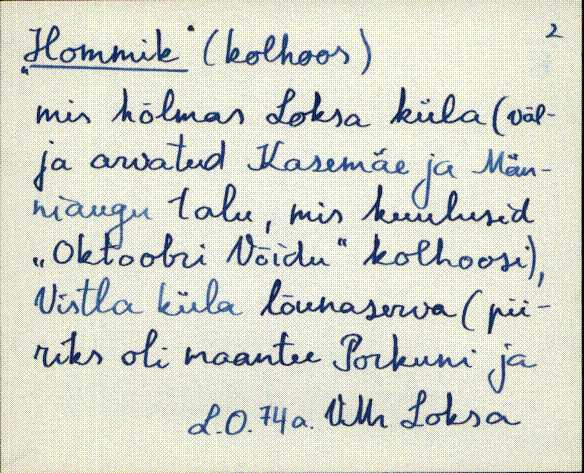 2
„Hommik" (kolhoos)
mis hõlmas Loksa küla (väl-
ja arvatud Kasemäe ja Män-
niaugu talu, mis kuulusid
„Oktoobri Võidu" kolhoosi),
Vistla küla lõunaserva (pii-
riks oli maantee Porkuni ja
L.O. 74a. VMr Loksa